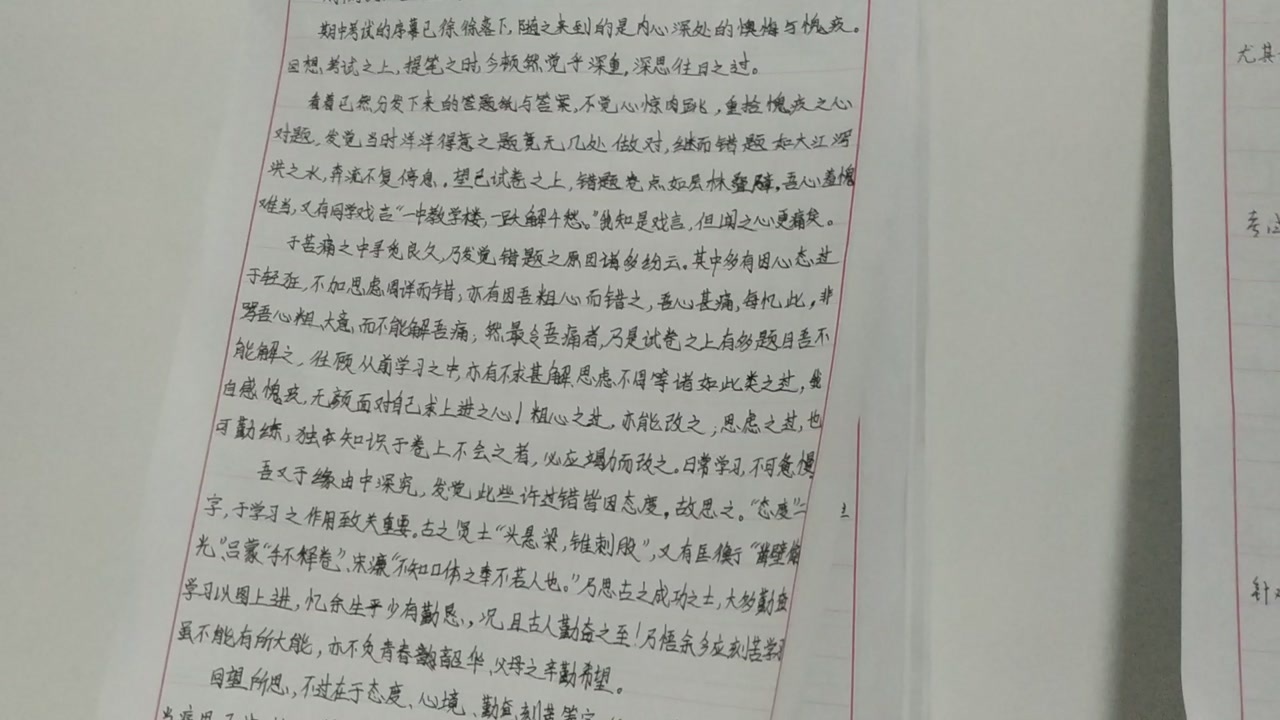 期中考试的序幕已徐徐落下,随之来到的是内心深处的懊悔与愧疚。
回想考试之上,提笔之时,今顿然觉乎深重,深思往日之过。
看着已然分发下来的答题纸与答案,不觉心惊肉跳,重拾愧疚之心
对题,发觉当时洋洋得意之题竟无几处做对,继而错题如大江泻
洪之水,奔流不复停息。望己试卷之上,错题卷点如层林叠障,吾心羞愧
难当,又有同学戏言“一中教学楼,一跃解千愁。”我知是戏言,但闻之心更痛矣。
于苦痛之中寻觅良久,乃发觉错题之原因诸多纷云。其中多有因心态过
于轻狂,不加思虑周详而错,亦有因吾粗心而错之,吾心甚痛,每忆此,非
骂吾心粗大意而不能解吾痛;然最令吾痛者,乃是试卷之上有多题目吾不
能解之,往顾从前学习之中,亦有不求甚解,思虑不周等诸如此类之过,我
自感愧疚,无颜面对自己求上进之心!粗心之过,亦能改之;思虑之过,也
可勤练,独本知识于卷上不会之者,必应竭力而改之。日常学习,不可怠慢
吾又于缘由中深究,发觉此些许过错皆因态度。故思之。“态度”二
字,于学习之作用至关重要。古之贤士“头悬梁,锥刺股”,又有匡衡“凿壁偷
光”、吕蒙“手不释卷”、宋濂“不知口体之奉不若人也。”乃思古之成功之士,大多勤奋
学习以图上进,忆余生平少有勤恳,况且古人勤奋之至!乃悟余多应刻苦学习
虽不能有所大能,亦不负青春韶华、父母之辛勤希望。
回望所思,不过在于态度、心境、勤奋、刻苦等字